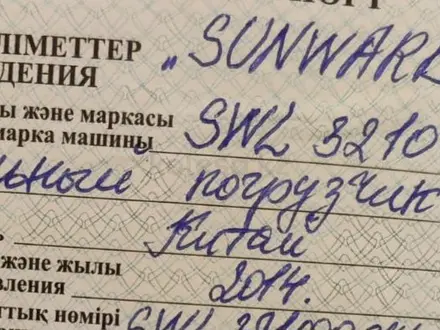 ЛІМЕТТЕР „SUNWARD
ДЕНИЯ
ы және маркасы
марка машины SWL 3210
ьный погрузчик
Китай
және жылы
вления 2014г.
ттық нөмірі SWL